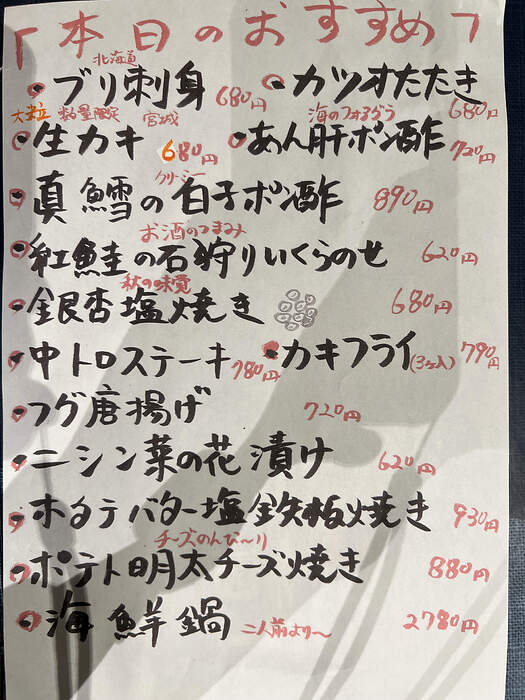 「本日のおすすめ」
北海道
・ブリ刺身 680円
・カツオたたき 680円
大粒 数量限定 宮城
・生カキ 680円
海のフォアグラ
・あん肝ポン酢 720円
クリーミー
・真鱈の白子ポン酢 890円
お酒のつまみ
・紅鮭の石狩りいくらのせ 620円
秋の味覚
・銀杏塩焼き 680円
・中トロステーキ 780円
・カキフライ(3ヶ入) 790円
・フグ唐揚げ 720円
・ニシン菜の花漬け 620円
・ホタテバター塩鉄板焼き 930円
チーズのんび〜り
・ポテト明太チーズ焼き 880円
・海鮮鍋 二人前より〜 2780円